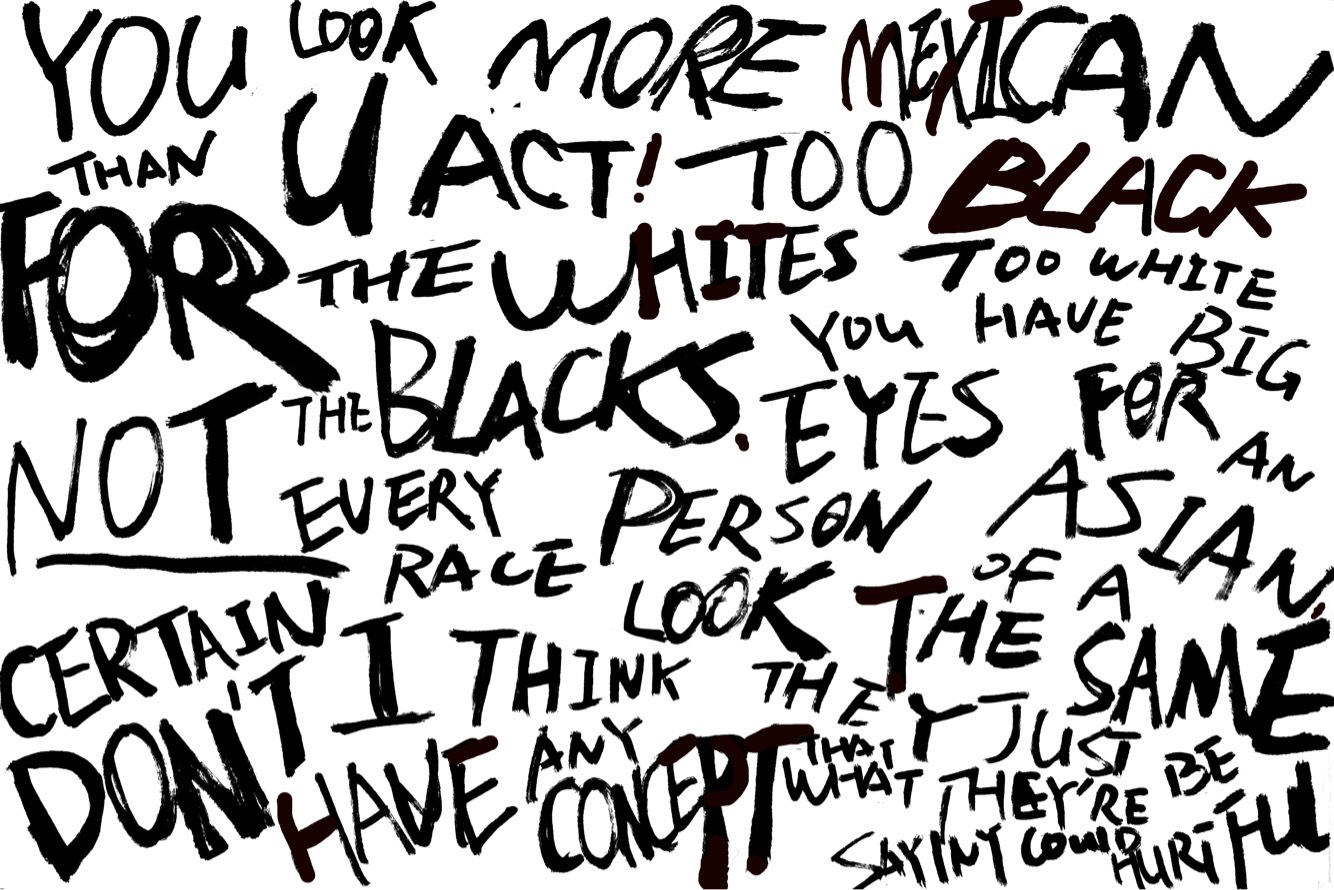 YOU LOOK MORE MEXICAN
THAN U ACT! TOO BLACK
FOR THE WHITES TOO WHITE
NOT THE BLACKS. YOU HAVE BIG
EYES FOR AN
EVERY PERSON ASIAN.
RACE OF A
CERTAIN LOOK THE SAME
DON'T I THINK THEY JUST
HAVE ANY CONCEPT THAT
WHAT THEY'RE BE
SAYINY COULD HURTFUL